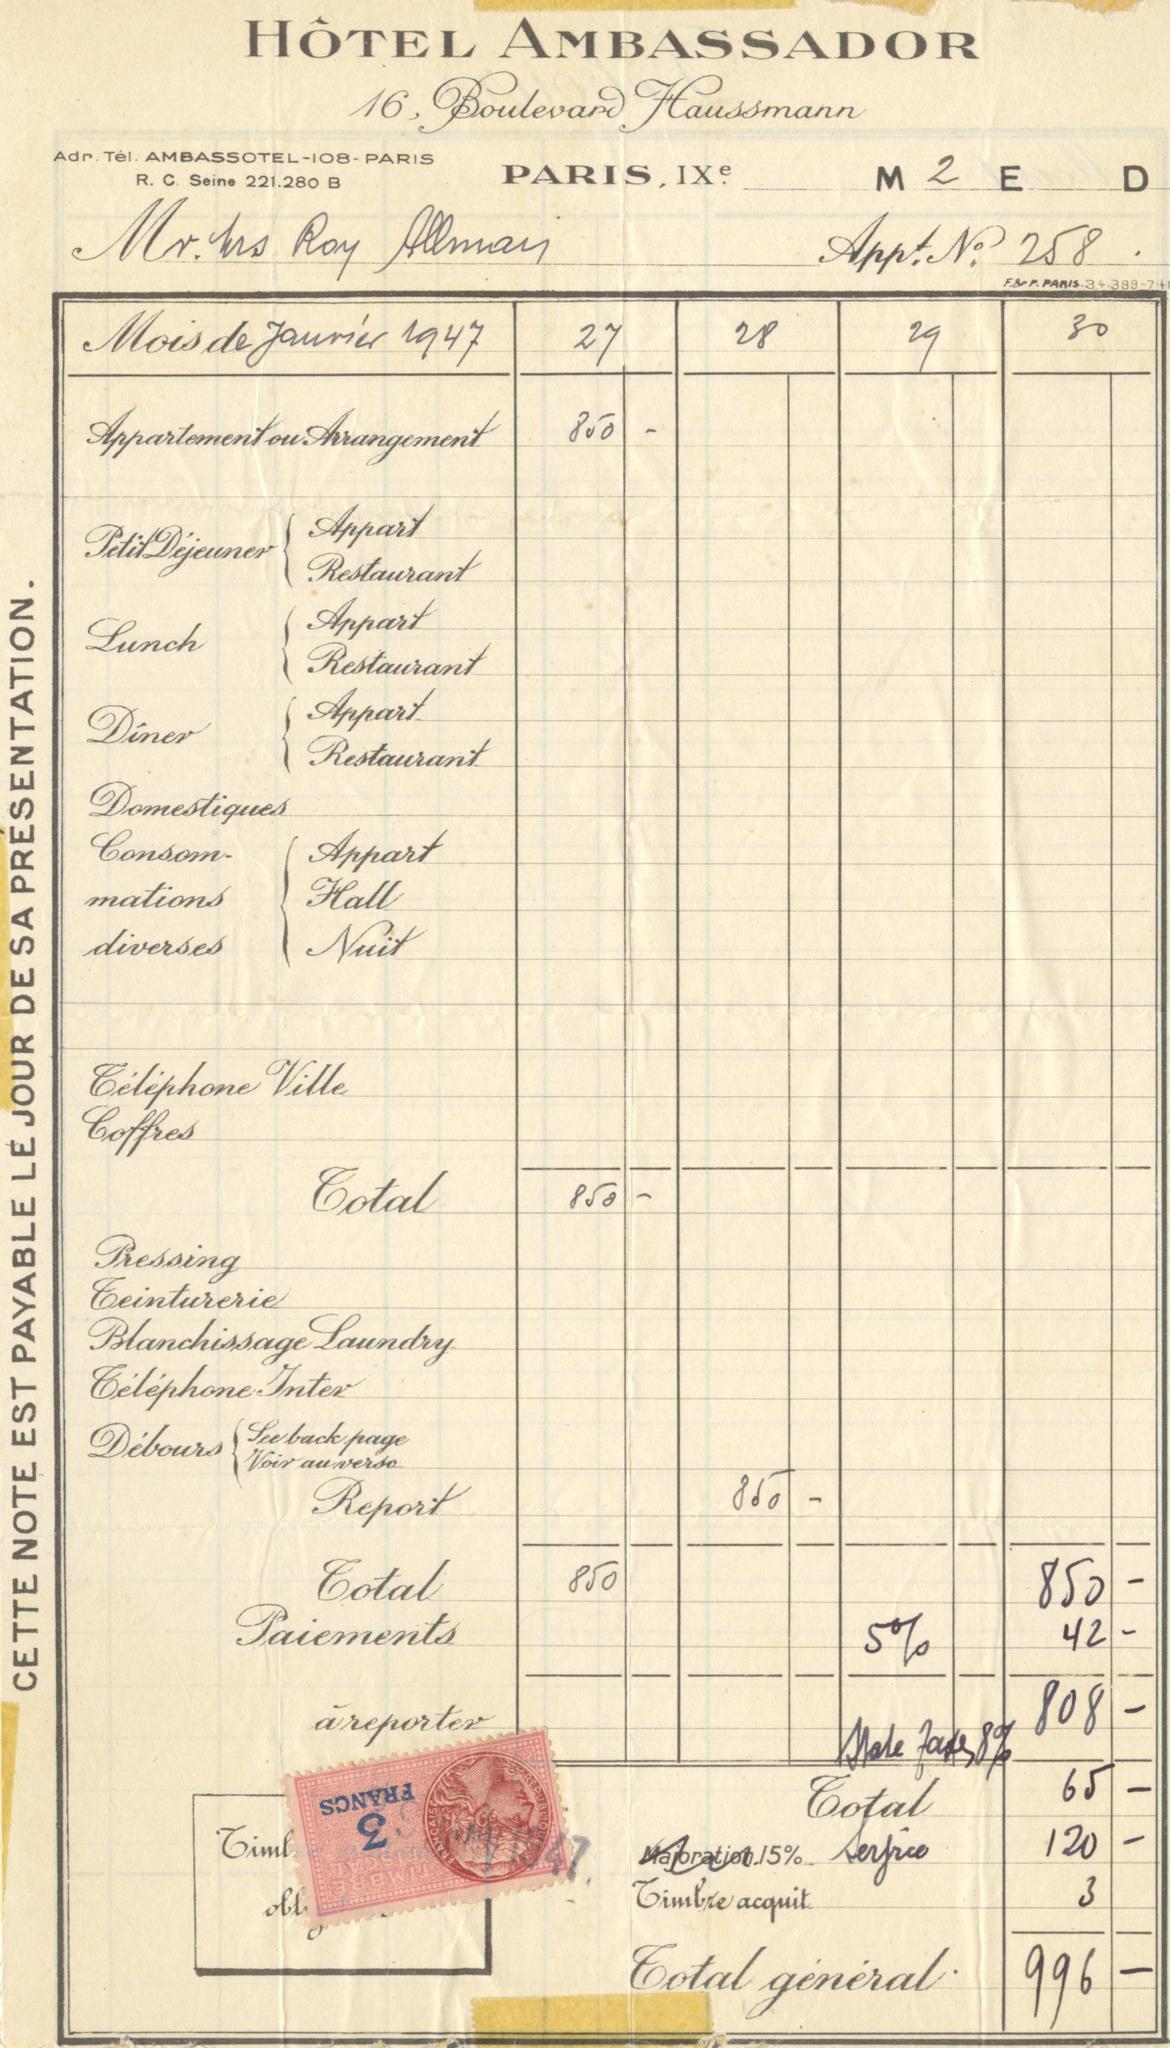 HÔTEL AMBASSADOR
16, Boulevard Haussmann
Adr. Tél. AMBASSOTEL-108-PARIS
R. C. Seine 221.280 B
PARIS, IXe. M 2 E D
Mr. Mrs Roy Allman Appt. No. 258
F. & P. PARIS.
Mois de Janvier 1947 27 28 29 30
Appartement ou Arrangement 850 -
Petit Déjeuner Appart
Restaurant
Lunch Appart
Restaurant
Dîner Appart
Restaurant
Domestiques
Consom- Appart
mations Hall
diverses Nuit
Téléphone Ville
Coffres
Total 850 -
Pressing
Teinturerie
Blanchissage Laundry
Téléphone Inter
Débours See back page
Voir au verso
Report 850 -
Total 850 850 -
Paiements 5% 42 -
à reporter 808 -
State Taxes 8%
Total 65 -
Majoration 15% Service 120 -
Timbre acquit 3
Total général 996 -
CETTE NOTE EST PAYABLE LE JOUR DE SA PRÉSENTATION.
3
FRANCS